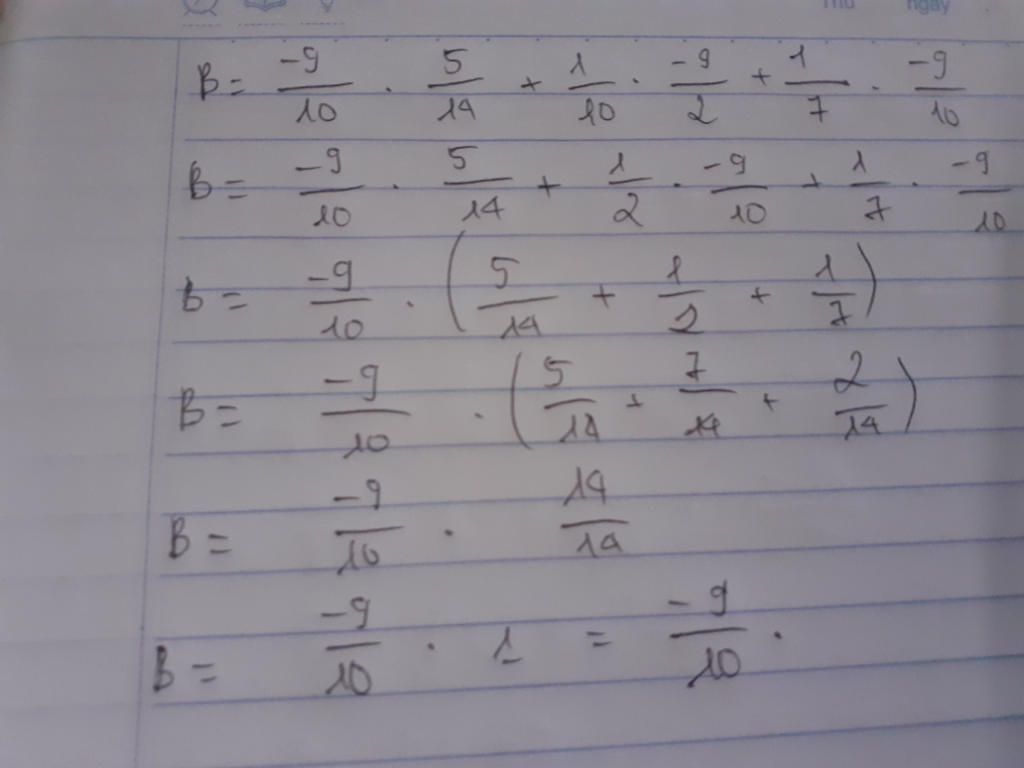 Thứ ngày
B = -9/10 . 5/14 + 1/10 . -9/2 + 1/7 . -9/10
B = -9/10 . 5/14 + 1/2 . -9/10 + 1/7 . -9/10
B = -9/10 . (5/14 + 1/2 + 1/7)
B = -9/10 . (5/14 + 7/14 + 2/14)
B = -9/10 . 14/14
B = -9/10 . 1 = -9/10 .